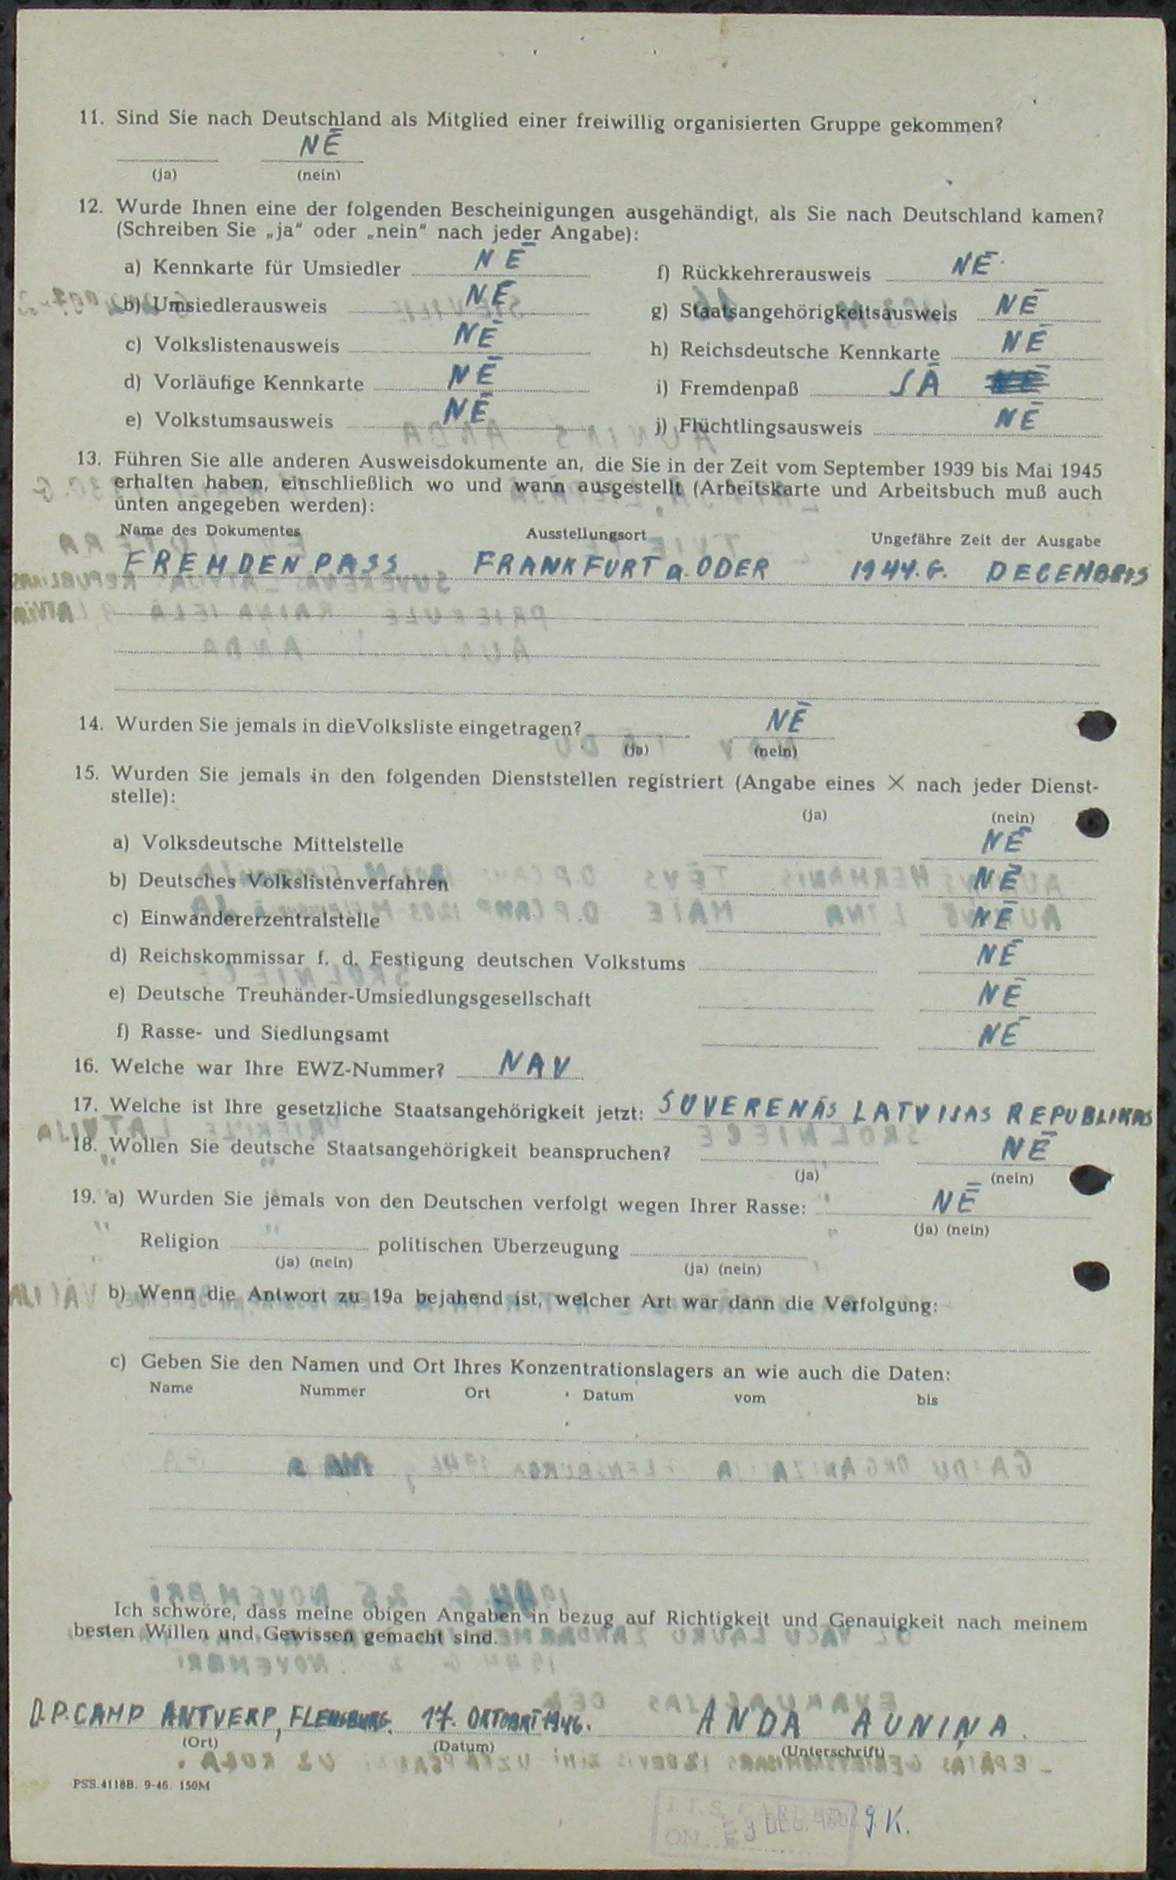 11. Sind Sie nach Deutschland als Mitglied einer freiwillig organisierten Gruppe gekommen?
NĒ
(ja) (nein)
12. Wurde Ihnen eine der folgenden Bescheinigungen ausgehändigt, als Sie nach Deutschland kamen?
(Schreiben Sie „ja" oder „nein" nach jeder Angabe):
a) Kennkarte für Umsiedler NĒ
b) Umsiedlerausweis NĒ
c) Volkslistenausweis NĒ
d) Vorläufige Kennkarte NĒ
e) Volkstumsausweis NĒ
f) Rückkehrerausweis NĒ
g) Staatsangehörigkeitsausweis NĒ
h) Reichsdeutsche Kennkarte NĒ
i) Fremdenpaß JĀ NĒ
j) Flüchtlingsausweis NĒ
13. Führen Sie alle anderen Ausweisdokumente an, die Sie in der Zeit vom September 1939 bis Mai 1945
erhalten haben, einschließlich wo und wann ausgestellt (Arbeitskarte und Arbeitsbuch muß auch
unten angegeben werden):
Name des Dokumentes Ausstellungsort Ungefähre Zeit der Ausgabe
FREMDENPASS FRANKFURT a. ODER 1944. G. DECEMBRIS
14. Wurden Sie jemals in die Volksliste eingetragen? NĒ
(ja) (nein)
15. Wurden Sie jemals in den folgenden Dienststellen registriert (Angabe eines × nach jeder Dienst-
stelle):
(ja) (nein)
a) Volksdeutsche Mittelstelle NĒ
b) Deutsches Volkslistenverfahren NĒ
c) Einwandererzentralstelle NĒ
d) Reichskommissar f. d. Festigung deutschen Volkstums NĒ
e) Deutsche Treuhänder-Umsiedlungsgesellschaft NĒ
f) Rasse- und Siedlungsamt NĒ
16. Welche war Ihre EWZ-Nummer? NAV
17. Welche ist Ihre gesetzliche Staatsangehörigkeit jetzt: SUVERENĀS LATVIJAS REPUBLIKAS
18. Wollen Sie deutsche Staatsangehörigkeit beanspruchen? NĒ
(ja) (nein)
19. a) Wurden Sie jemals von den Deutschen verfolgt wegen Ihrer Rasse: NĒ
(ja) (nein)
Religion politischen Überzeugung
(ja) (nein) (ja) (nein)
b) Wenn die Antwort zu 19a bejahend ist, welcher Art war dann die Verfolgung:
c) Geben Sie den Namen und Ort Ihres Konzentrationslagers an wie auch die Daten:
Name Nummer Ort Datum vom bis
Ich schwöre, dass meine obigen Angaben in bezug auf Richtigkeit und Genauigkeit nach meinem
besten Willen und Gewissen gemacht sind.
D.P.CAMP ANTVERP, FLENSBURG. 17. OKTOBRĪ 1946. ANDA AUNIŅA.
(Ort) (Datum) (Unterschrift)
PSS.4118B. 9-46. 150M
J.K.